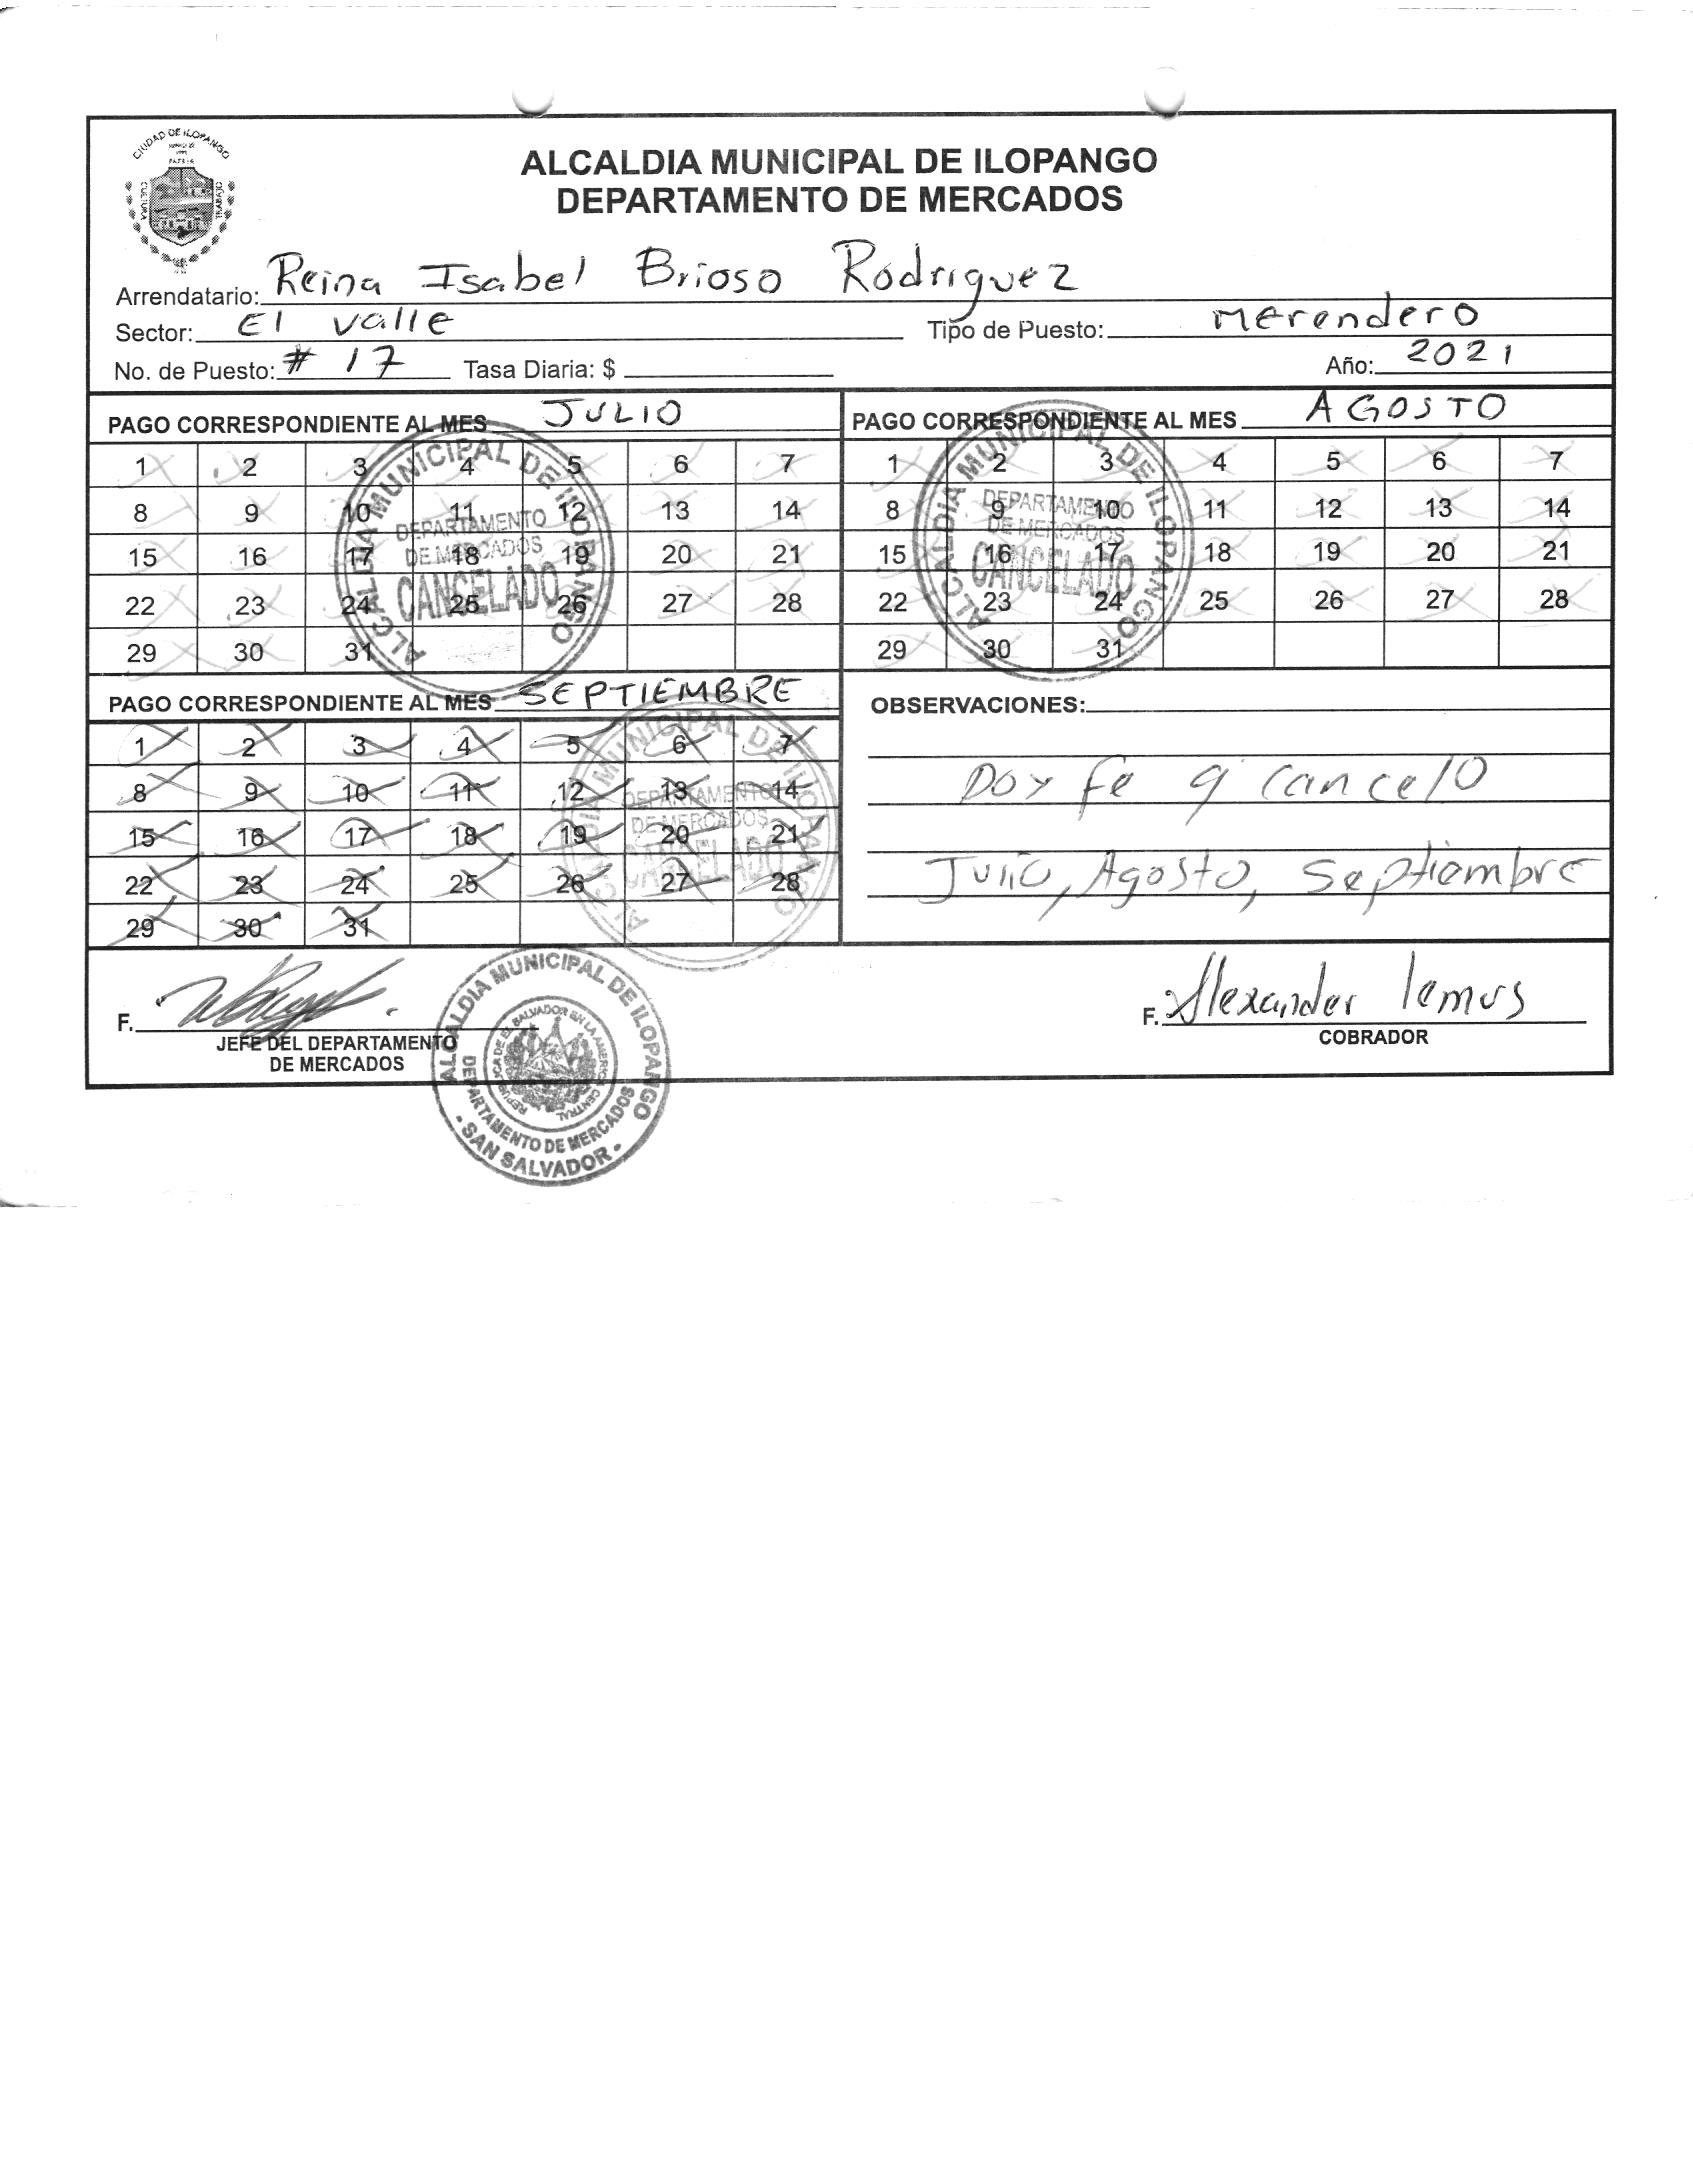 CIUDAD DE ILOPANGO
CULTURA
TRABAJO
ALCALDIA MUNICIPAL DE ILOPANGO
DEPARTAMENTO DE MERCADOS
Arrendatario: Reina Isabel Brioso Rodriguez
Sector: El valle Tipo de Puesto: merendero
No. de Puesto: # 17 Tasa Diaria: $ Año: 2021
PAGO CORRESPONDIENTE AL MES JULIO
1 2 3 4 5 6 7
8 9 10 11 12 13 14
15 16 17 18 19 20 21
22 23 24 25 26 27 28
29 30 31
ALCALDIA MUNICIPAL DE ILOPANGO
DEPARTAMENTO
DE MERCADOS
CANCELADO
PAGO CORRESPONDIENTE AL MES AGOSTO
1 2 3 4 5 6 7
8 9 10 11 12 13 14
15 16 17 18 19 20 21
22 23 24 25 26 27 28
29 30 31
ALCALDIA MUNICIPAL DE ILOPANGO
DEPARTAMENTO
DE MERCADOS
CANCELADO
PAGO CORRESPONDIENTE AL MES SEPTIEMBRE
1 2 3 4 5 6 7
8 9 10 11 12 13 14
15 16 17 18 19 20 21
22 23 24 25 26 27 28
29 30 31
ALCALDIA MUNICIPAL DE ILOPANGO
DEPARTAMENTO
DE MERCADOS
CANCELADO
OBSERVACIONES:
Doy fe q' cancelo
Julio, Agosto, Septiembre
F.
JEFE DEL DEPARTAMENTO
DE MERCADOS
ALCALDIA MUNICIPAL DE ILOPANGO
REPUBLICA DE EL SALVADOR EN LA AMERICA CENTRAL
DEPARTAMENTO DE MERCADOS
- SAN SALVADOR -
F. Alexander lemus
COBRADOR